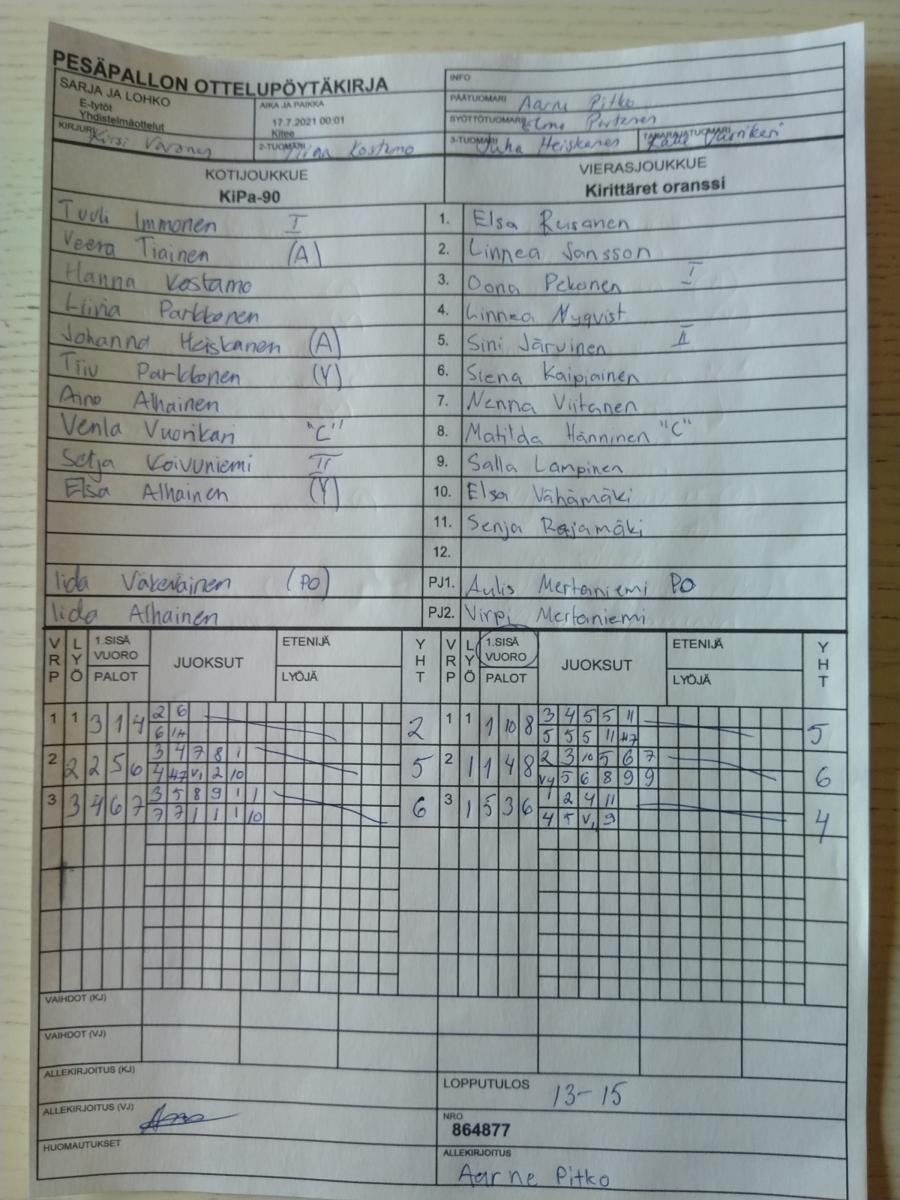 PESÄPALLON OTTELUPÖYTÄKIRJA
INFO
SARJA JA LOHKO
E-tytöt
Yhdistelmäottelut
AIKA JA PAIKKA
17.7.2021 00:01
Kitee
PÄÄTUOMARI Aarne Pitko
SYÖTTÖTUOMARI Elmo Partanen
KIRJURI Kirsi Varonen
2-TUOMARI Tiina Kostamo
3-TUOMARI Juha Heiskanen
TAKARAJATUOMARI Kalle Vuorikari
KOTIJOUKKUE
KiPa-90
VIERASJOUKKUE
Kirittäret oranssi
Tuuli Immonen I 1. Elsa Rusanen
Veera Tiainen (A) 2. Linnea Jansson
Hanna Kostamo 3. Oona Pekonen I
Liina Parkkonen 4. Linnea Nyqvist
Johanna Heiskanen (A) 5. Sini Järvinen II
Tiiu Parkkonen (Y) 6. Siena Kaipiainen
Aino Alhainen 7. Nenna Viitanen
Venla Vuorikari "C" 8. Matilda Hänninen "C"
Selja Koivuniemi II 9. Salla Lampinen
Elsa Alhainen (Y) 10. Elsa Vähämäki
11. Senja Rajamäki
12.
Iida Väkeväinen (PO) PJ1. Aulis Mertaniemi PO
Iida Alhainen PJ2. Virpi Mertaniemi
VRP LYÖ 1.SISÄ VUORO PALOT JUOKSUT ETENIJÄ LYÖJÄ YHT VRP LYÖ 1.SISÄ VUORO PALOT JUOKSUT ETENIJÄ LYÖJÄ YHT
1 1 3 1 4 2 6 2 1 1 1 10 8 3 4 5 5 11 5
5 5 5 11
2 2 2 5 6 3 4 7 8 1 5 2 1 1 4 8 2 3 10 5 6 7 6
4 2 10 5 6 8 9 9
3 3 4 6 7 3 5 8 9 1 1 6 3 1 5 3 6 1 2 4 11 4
7 7 1 1 1 10 4 5 9
VAIHDOT (KJ)
VAIHDOT (VJ)
ALLEKIRJOITUS (KJ)
LOPPUTULOS 13-15
ALLEKIRJOITUS (VJ)
NRO
864877
HUOMAUTUKSET
ALLEKIRJOITUS
Aarne Pitko